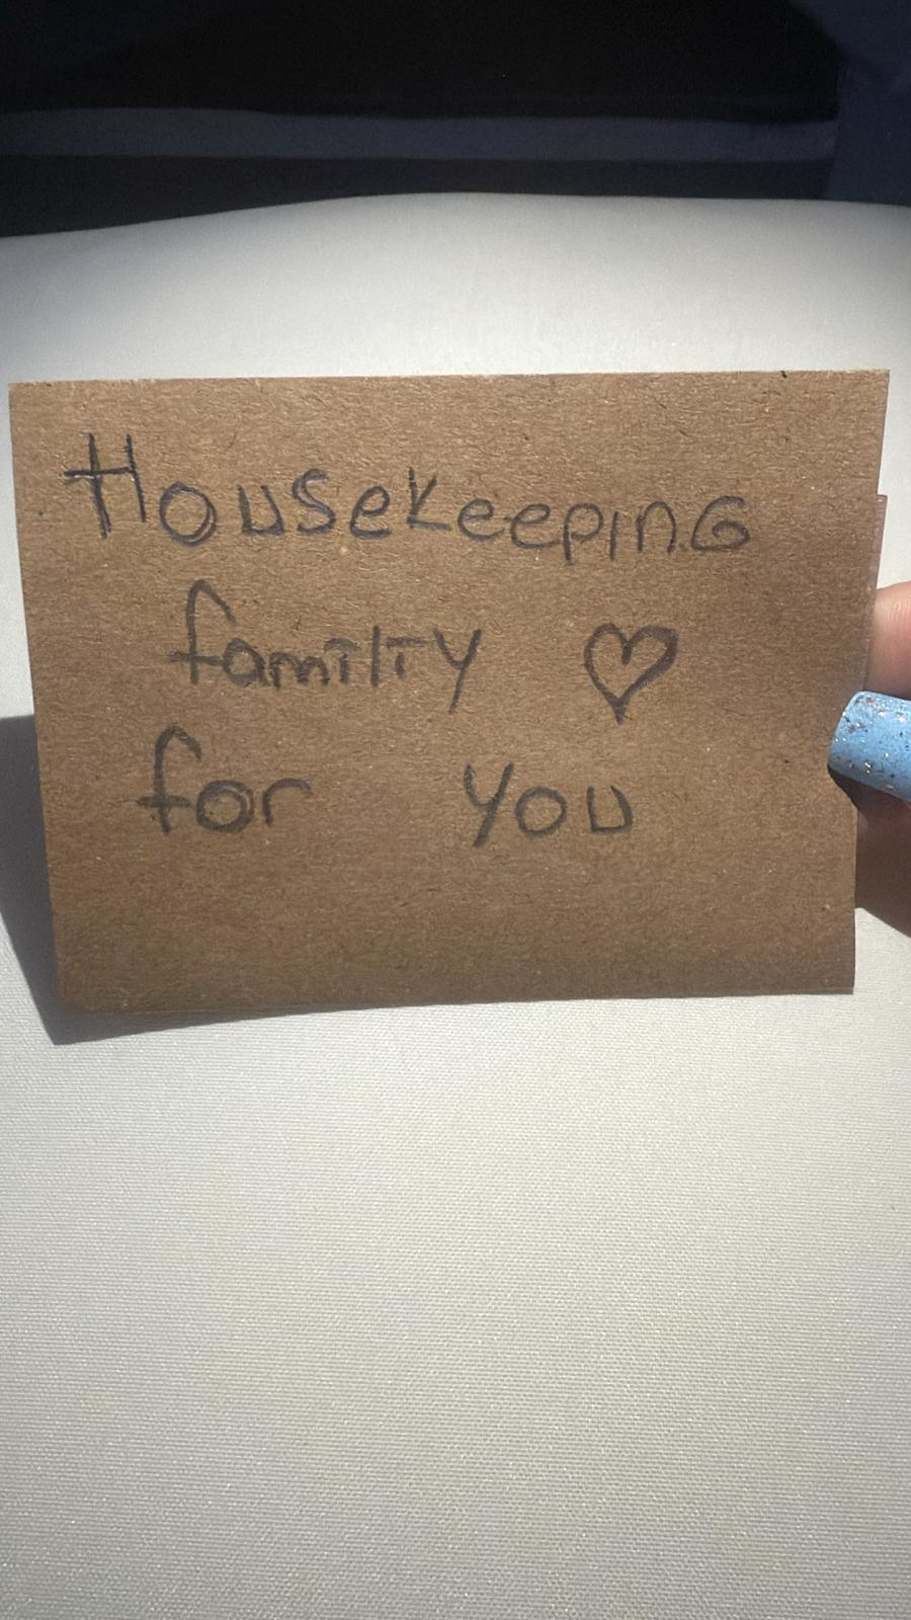 HousekeepinG
familiy ♡
for you